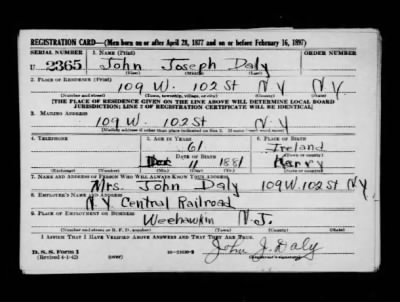 REGISTRATION CARD—(Men born on or after April 28, 1877 and on or before February 16, 1897)
SERIAL NUMBER 1. NAME (Print) ORDER NUMBER
U 2365 John Joseph Daly
(First) (Middle) (Last)
2. PLACE OF RESIDENCE (Print)
109 W. 102 St N Y N Y
(Number and street) (Town, township, village, or city) (County) (State)
[THE PLACE OF RESIDENCE GIVEN ON THE LINE ABOVE WILL DETERMINE LOCAL BOARD
JURISDICTION; LINE 2 OF REGISTRATION CERTIFICATE WILL BE IDENTICAL]
3. MAILING ADDRESS
109 W. 102 St N.Y
[Mailing address if other than place indicated on line 2. If same insert word same]
4. TELEPHONE 5. AGE IN YEARS 6. PLACE OF BIRTH
61 Ireland
DATE OF BIRTH (Town or county)
11 1881 Kerry
(Exchange) (Number) (Mo.) (Day) (Yr.) (State or country)
7. NAME AND ADDRESS OF PERSON WHO WILL ALWAYS KNOW YOUR ADDRESS
Mrs. John Daly 109 W. 102 St N Y
8. EMPLOYER'S NAME AND ADDRESS
N.Y. Central Railroad
9. PLACE OF EMPLOYMENT OR BUSINESS
Weehawkin N.J.
(Number and street or R. F. D. number) (Town) (County) (State)
I AFFIRM THAT I HAVE VERIFIED ABOVE ANSWERS AND THAT THEY ARE TRUE.
John J. Daly
D. S. S. Form 1
(Revised 4-1-42) (over) (Registrant's signature)